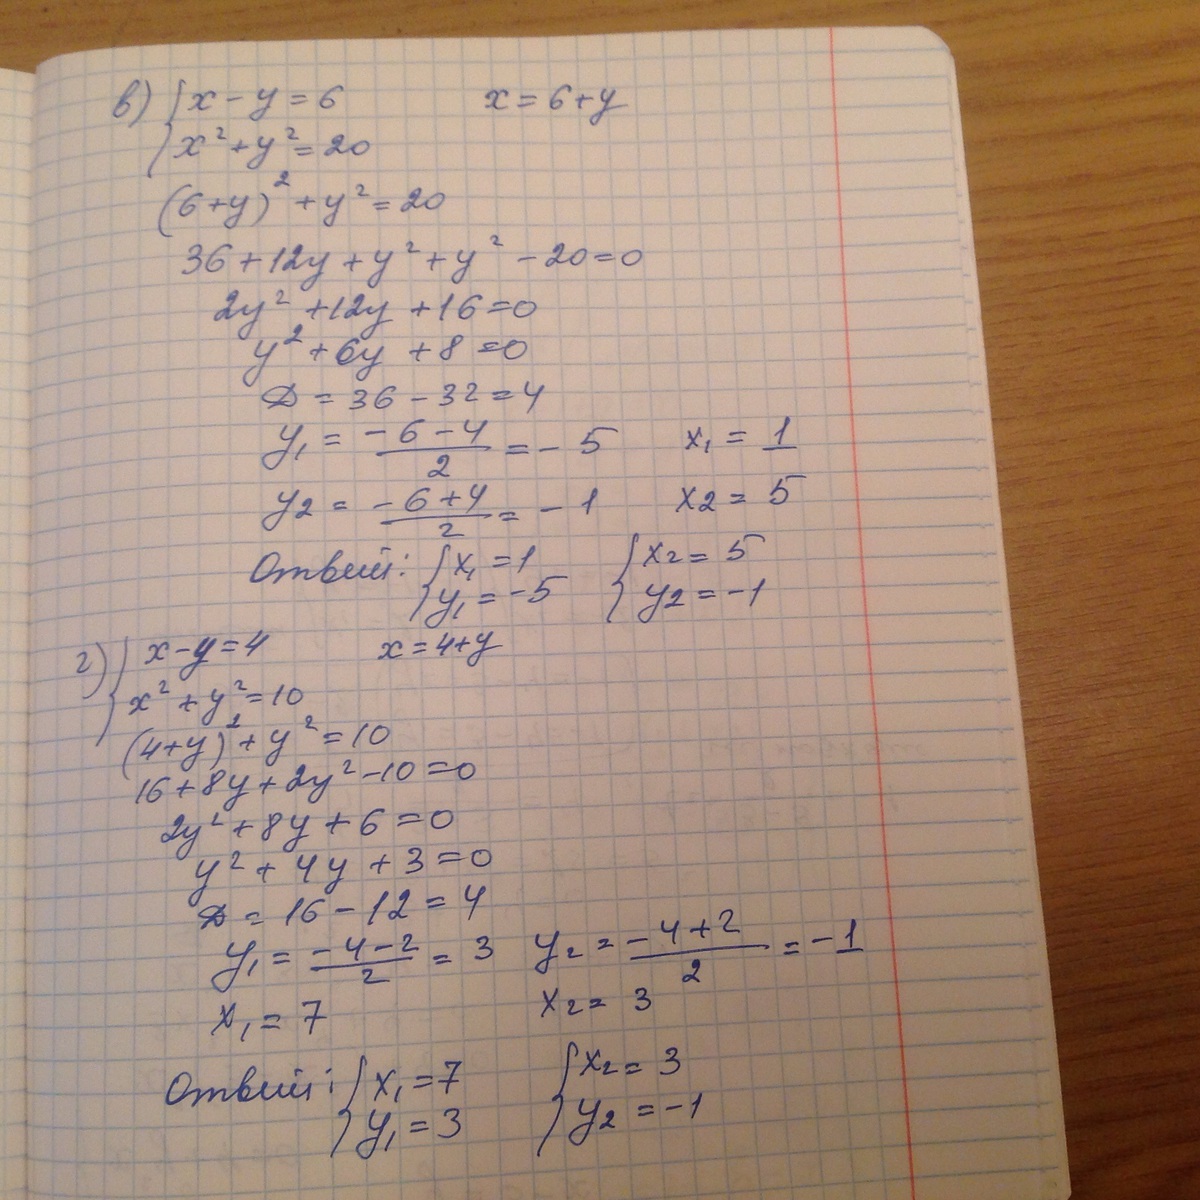 в) { x - y = 6    x = 6 + y
x² + y² = 20
(6 + y)² + y² = 20
36 + 12y + y² + y² - 20 = 0
2y² + 12y + 16 = 0
y² + 6y + 8 = 0
D = 36 - 32 = 4
y₁ = (-6 - 4)/2 = -5    x₁ = 1
y₂ = (-6 + 4)/2 = -1    x₂ = 5
Ответ: { x₁ = 1    { x₂ = 5
y₁ = -5    y₂ = -1
г) { x - y = 4    x = 4 + y
x² + y² = 10
(4 + y)² + y² = 10
16 + 8y + 2y² - 10 = 0
2y² + 8y + 6 = 0
y² + 4y + 3 = 0
D = 16 - 12 = 4
y₁ = (-4 - 2)/2 = 3    y₂ = (-4 + 2)/2 = -1
x₁ = 7    x₂ = 3
Ответ: { x₁ = 7    { x₂ = 3
y₁ = 3    y₂ = -1